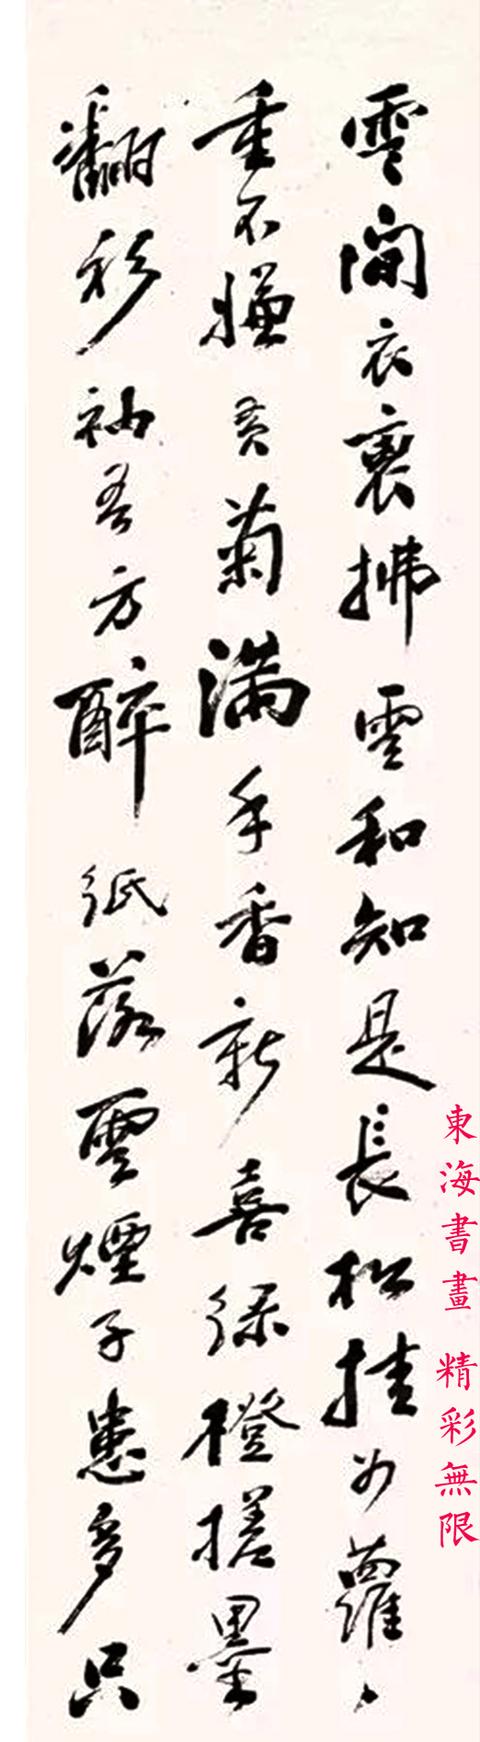 雲間衣裏拂雲和知是長松挂女蘿
重不嫌黃菊滿手香新喜綠橙搓墨
翻衫袖吾方醉紙落雲煙子患多只
東海書畫 精彩無限